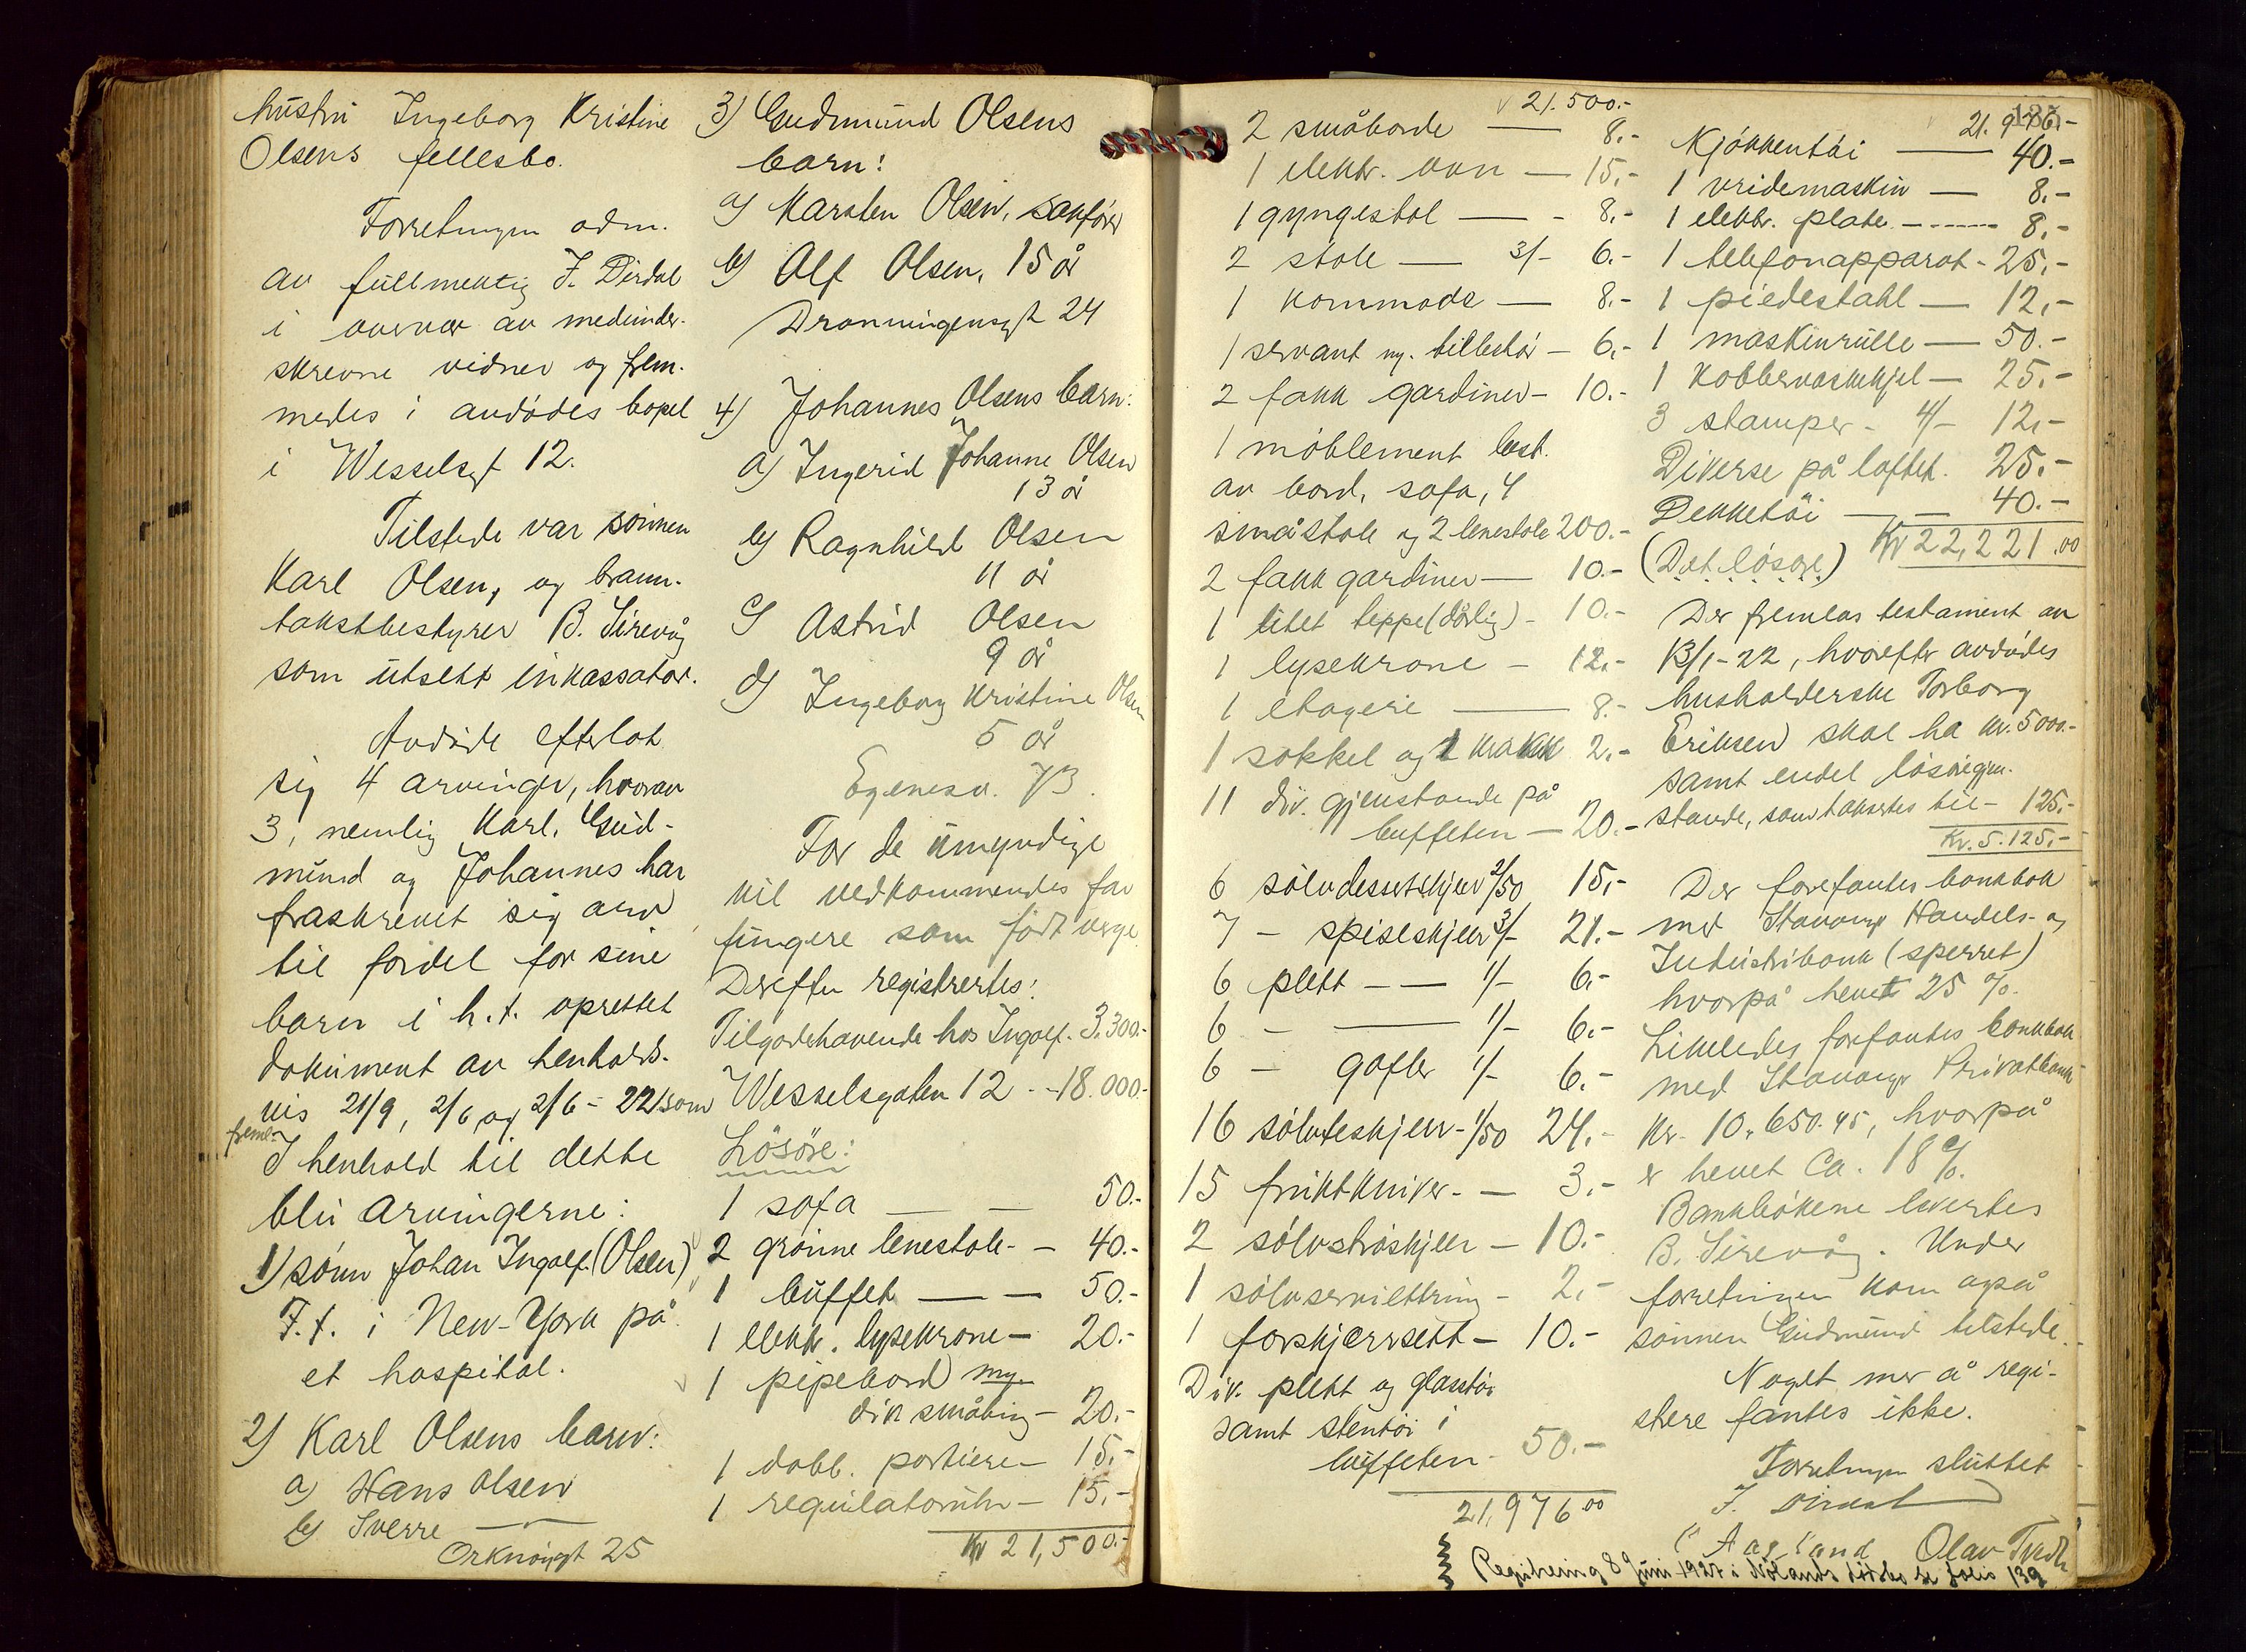 hustru Ingeborg Kristine
Olsens fellesbo.
Forretningen adm.
av fullmektig J. Dirdal
i overvær av medunder-
skrevne vidner og frem-
medes i avdødes bopel
i Wesselsgt 12.
Tilstede var sønnen
Karl Olsen, og brann-
takstbestyrer B. Sirevåg
som utsett inkassator.
Avdøde efterlot
sig 4 arvinger, hvorav
3, nemlig Karl, Gud-
mund og Johannes har
fraskrevet sig arv
til fordel for sine
barn i h.t. oprettet
dokument av henholds-
vis 21/9, 2/6 og 2/6 - 22 som
freml.
I henhold til dette
blir arvingerne:
1) sønn Johan Ingolf (Olsen)
F.t. i New-York på
et hospital.
2) Karl Olsens barn:
a) Hans Olsen
b) Sverre —
Orknøygt 25
3) Gudmund Olsens
barn:
a) Karsten Olsen, sakfører
b) Alf Olsen, 15 år
Dronningensgt 24
4) Johannes Olsens barn:
a) Ingerid Johanne Olsen
13 år
b) Ragnhild Olsen
11 år
c) Astrid Olsen
9 år
d) Ingeborg Kristine Olsen
5 år
Egenesv. 73.
For de umyndige
vil vedkommendes far
fungere som født verge.
Derefter registrertes:
Tilgodehavende hos Ingolf. 3.300.-
Wesselsgaten 12 - - 18.000.-
Løsøre:
1 sofa — — 50.-
2 grønne lenestole - - 40.-
1 buffet — — 50.-
1 elektr. lysekrone — 20.-
1 pipebord m.
div småting — 20.-
1 dobb. portiere — 15.-
1 regulatoruhr — 15.-
Kr 21,500.-
21.500.-
2 småborde — 8.-
1 elektr. ovn — 15.-
1 gyngestol — - 8.-
2 stole — 3/- 6.-
1 kommode — 8.-
1 servant m. tilbehør — 6.-
2 fakk gardiner — 10.-
1 møblement best.
av bord, sofa, 4
småstole og 2 lenestole 200.-
2 fakk gardiner — 10.-
1 litet teppe (dårlig) - 10.-
1 lysekrone — 12.-
1 etagere — 8.-
1 sokkel og 1 krakk 2.-
11 div. gjenstande på
buffeten — 20.-
6 sølvdesertskjeer 2/50 15.-
7 - spiseskjeer 3/- 21.-
6 plett — — 1/- 6.-
6 - — 1/- 6.-
6 - gafler 1/- 6.-
16 sølvteskjeer - 1/50 24.-
15 fruktkniver - — 3.-
2 sølvstrøskjeer — 10.-
1 sølvserviettring - 2.-
1 forskjærsett — 10.-
Div. plett og glasstøi
samt stentøi i
buffeten - 50.-
21,976 00
21.976.-
Kjøkkentøi — 40.-
1 vridemaskin — 8.-
1 elektr. plate - 8.-
1 telefonapparat - 25.-
1 piedestahl — 12.-
1 maskinrulle — 50.-
1 kobbervaskekjel — 25.-
3 stamper - 4/- 12.-
Diverse på loftet. 25.-
Dekketøi — — 40.-
(Det løsøre) Kr 22,221.00
Der fremlas testament av
13/1-22, hvorefter avdødes
husholderske Torborg
Eriksen skal ha kr. 5000.-
samt endel løsøregjen-
stande, som takseres til — 125.-
Kr. 5.125.-
Der forefantes bankbok
med Stavanger Handels- og
Industribank (sperret)
hvorpå hevet 25 %.
Likeledes forefantes bankbok
med Stavanger Privatbank
kr. 10.650.45, hvorpå
er hevet Ca. 18 %.
Bankbøkene levertes
B. Sirevåg. Under
forretningen kom også
sønnen Gudmund tilstede.
Noget mer å regi-
strere fantes ikke.
Forretningen sluttet
J. Dirdal
Aagland Olav Tvedt
Registrering 8 Juni 1927 i Nølands dødsbo se folio 139